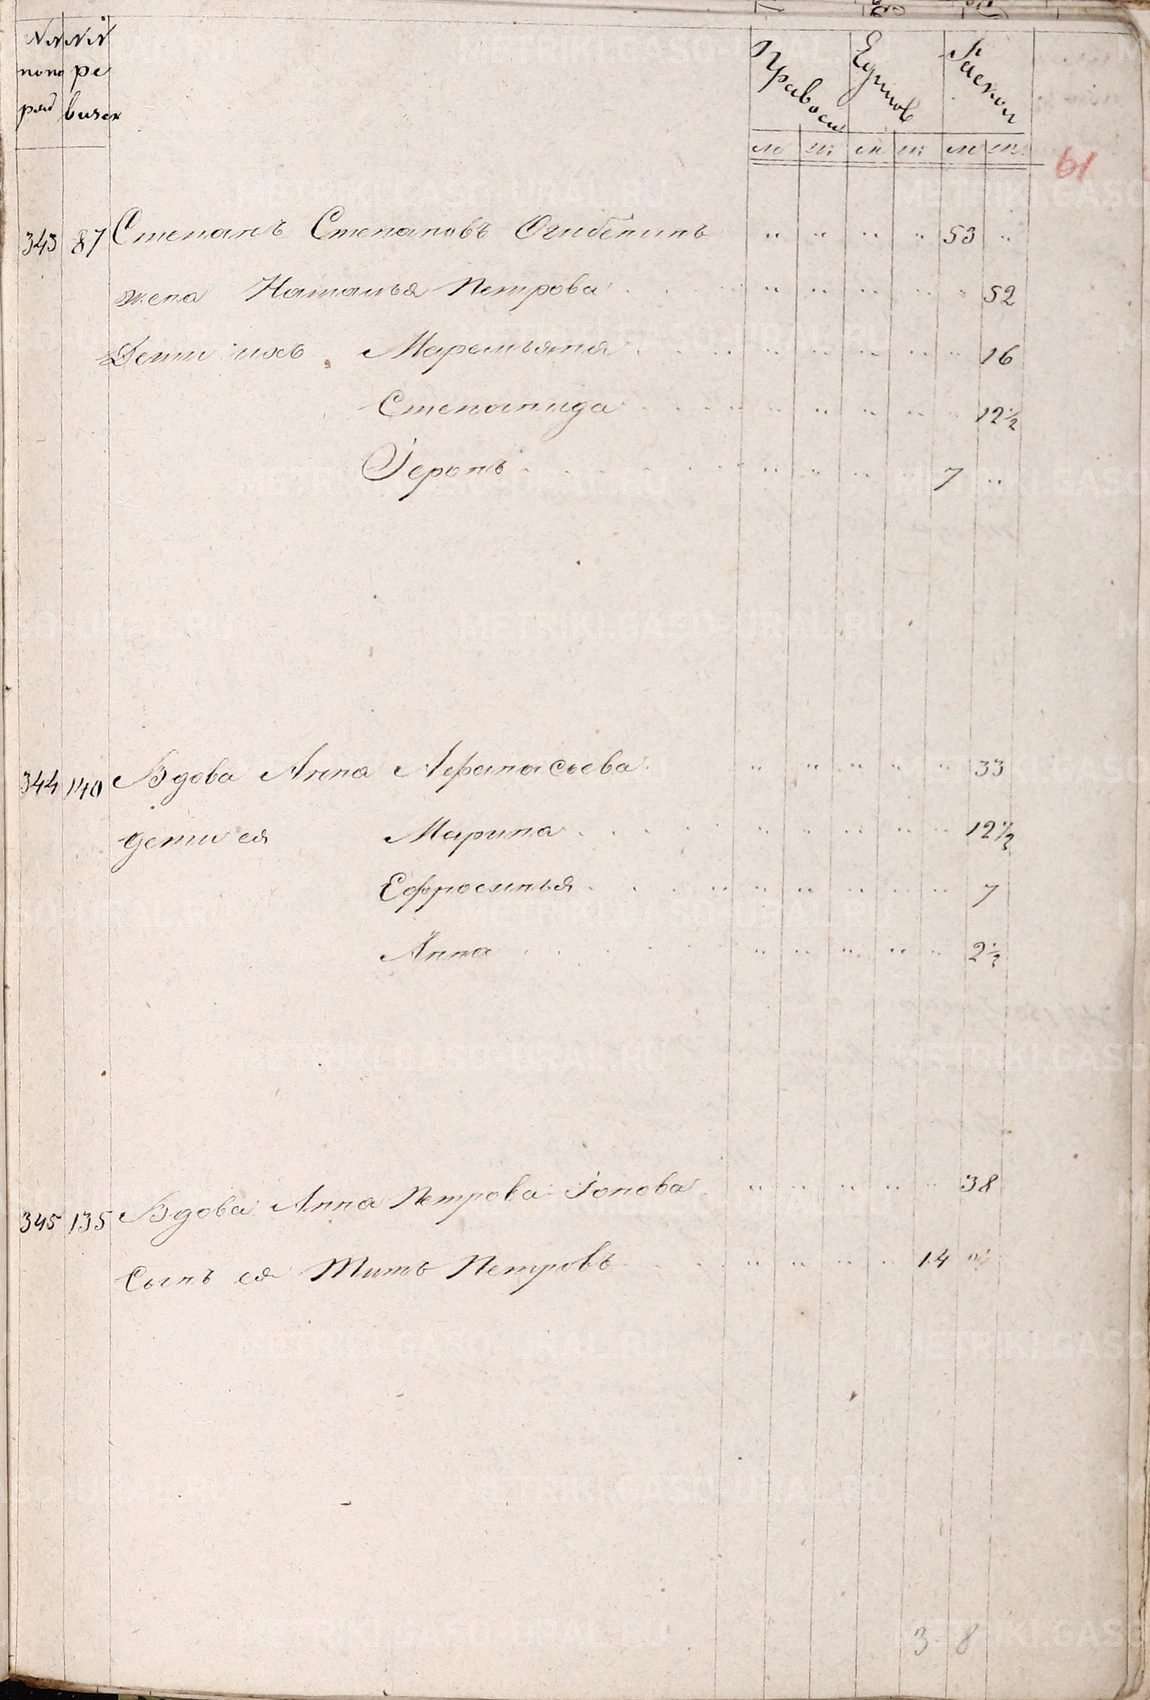 NN NN
попо ре
ряд визск
Правосл Единов Раскол
м ж м ж м ж
61
343 87 Степанъ Степановъ Огибенинъ 53
жена Наталья Петрова 52
Дети ихъ Маремьяна 16
Степанида 12½
Геронъ 7
344 140 Вдова Анна Афанасьева 33
дети ея Марина 12½
Ефросинья 7
Анна 2½
345 135 Вдова Анна Петрова Іонова 38
Сынъ ея Титъ Петровъ 14
3 8